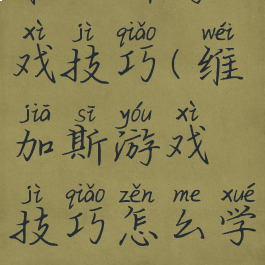 xì jì qiǎo wéi
戏技巧(维
jiā sī yóu xì
加斯游戏
jì qiǎo zěn me xué
技巧怎么学